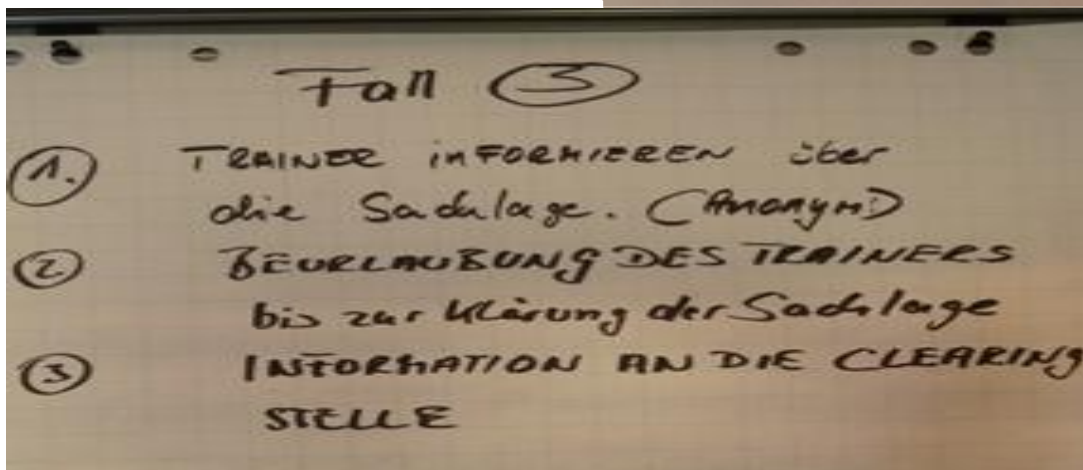 Fall ③
①. TRAINER INFORMIEREN über
die Sachlage. (ANONYM)
② BEURLAUBUNG DES TRAINERS
bis zur Klärung der Sachlage
③ INFORMATION AN DIE CLEARING
STELLE